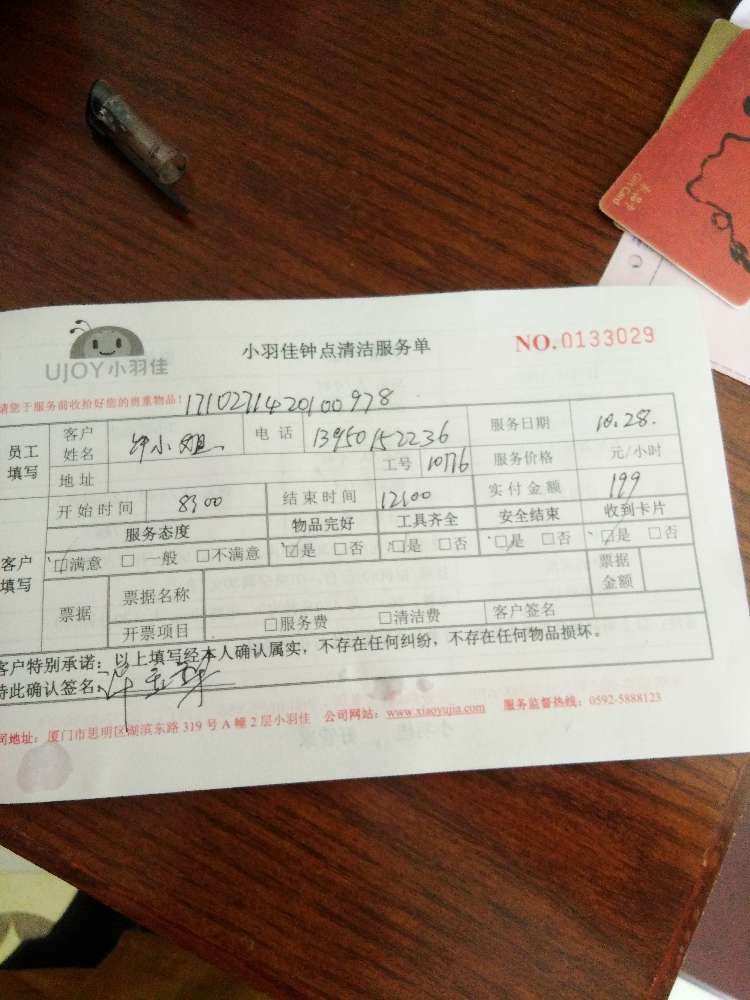 UJOY小羽佳
小羽佳钟点清洁服务单
NO.0133029
请您于服务前收拾好您的贵重物品!
1710271420100978
员工填写
客户姓名 小姐
电话 13950152236
服务日期 10.28.
地址
工号 10776
服务价格 元/小时
开始时间 8:00
结束时间 12:00
实付金额 199
客户填写
服务态度 物品完好 工具齐全 安全结束 收到卡片
□满意 □一般 □不满意 □是 □否 □是 □否 □是 □否 □是 □否
票据 票据名称 票据金额
开票项目 □服务费 □清洁费 客户签名
客户特别承诺:以上填写经本人确认属实,不存在任何纠纷,不存在任何物品损坏。
特此确认签名:
司地址:厦门市思明区湖滨东路 319 号 A 幢 2 层小羽佳 公司网站:www.xiaoyujia.com 服务监督热线:0592-5888123
Gift Card